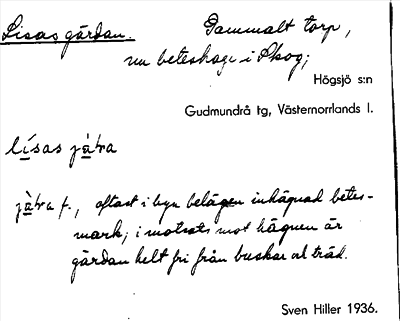 Lisasgärdan. Gammalt torp,
nu beteshage i Skog;
Högsjö s:n
Gudmundrå tg, Västernorrlands l.
lísas jàtra
jàtra f., oftast i byn belägen inhägnad betes-
mark; i motsats mot hägnen är
gärdan helt fri från buskar o. träd.
Sven Hiller 1936.